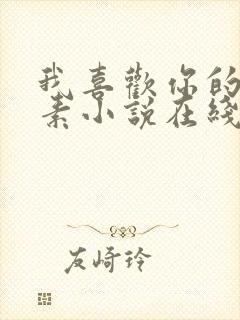 我喜歡你的
素小說在綫
友崎玲